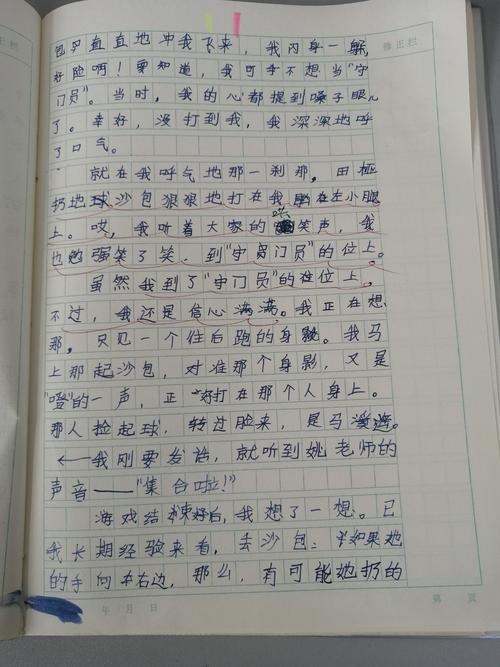 包罗直直地冲我飞来，我内身一躲，
好险啊！要知道，我可乎不想当“守
门员”。当时，我的心都提到嗓子眼儿
了。幸好，没打到我，我深深地呼
了口气。
就在我呼气地那一刹那，田桠
扔地球沙包狠狠地打在我左小腿
上。哎，我听着大家的哄笑声，我
也勉强笑了笑，到“守门员”的位上。
虽然我到了“守门员”的位上。
不过，我还是信心满满。我正在想
那，只见一个往后跑的身影。我马
上那起沙包，对准那个身影，又是
“噔”的一声，正好打在那个人身上。
那人捡起球，转过脸来，是马漫游。
我刚要发话，就听到姚老师的
声音——“集合啦！”
游戏结束好后，我想了一想。已
我长期经验来看，丢沙包：如果她
的手向右边，那么，有可能她扔的
修正栏
年 月 日
第 页